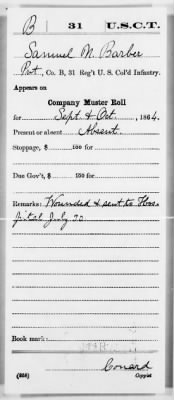 B 31 U.S.C.T.
Samuel N. Barber
Pvt., Co. B, 31 Reg't U. S. Col'd Infantry.
Appears on
Company Muster Roll
for Sept & Oct, 1864.
Present or absent Absent
Stoppage, $ 100 for
Due Gov't, $ 100 for
Remarks: Wounded & sent to Hos-
pital July 30
Book mark:
(858) Conard
Copyist.